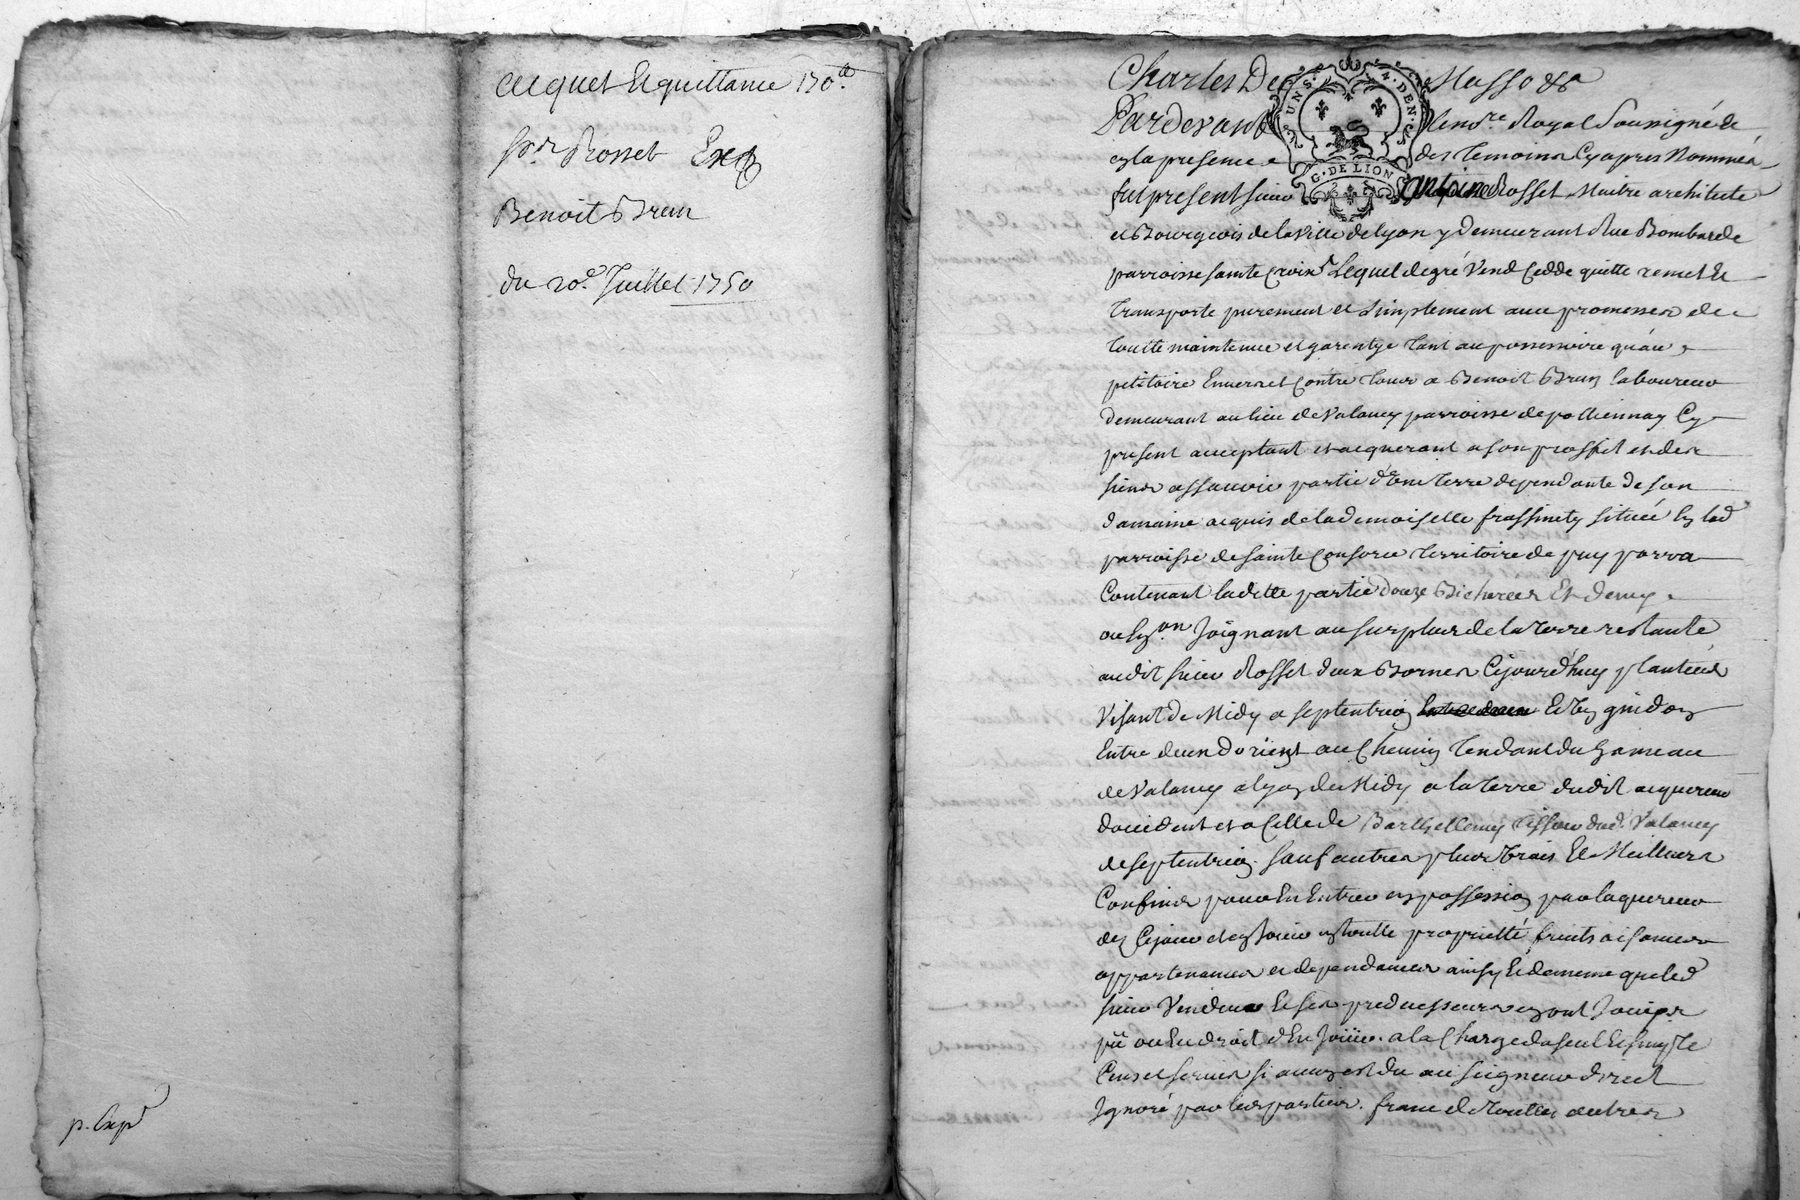 acquet Et quittance 170ll
Sr Rosset Expé
Benoit Brun
du 20e Juillet 1750
p. Expé
Charles De Masso &a
Pardevant le nore Royal Soussigné &
en la presence des temoins Cy apres Nommés
fut present sieur antoine Rosset Maitre architecte
et Bourgeois de la Ville de lyon y demeurant Rue Bombarde
parroisse sainte Croix, Lequel de gré Vend Cedde quitte remet Et
transporte purement et simplement avec promesse de
toutte maintenue et garentye tant au possessoire qu'au
petitoire Envers et Contre tous a Benoit Brun laboureur
demeurant au lieu de Valancy parroisse de pollionnay Cy
present acceptant et acquerant a son proffit et des
siens assavoir partie d'une terre dependante de son
domaine acquis de la demoiselle frassinety située En lad
parroisse de sainte Consorce territoire de puy
Contenant laditte partie douze Bicherées Et demy
ou Environ Joignant au surplus de la terre restante
audit sieur Rosset deux Bornes Cejourd'huy plantées
Visant de Midy a septentrion Et guidon
Entre deux d'orient au Chemin tendant du hameau
de Valancy a lyon de Midy a la terre dudit acquereur
d'occident et a Celle de Barthellemy tisseur dud. Valancy
de septentrion. sauf autres plus Vrais Et Meilleurs
Confins pour En Entrer en possession par l'acquereur
dez Cejour et en Jouir en toutte proprietté fruits aisances
appartenances et dependances ainsy Et de meme que led
sieur Vendeur Et ses predecesseurs en ont Jouis
pû ou Eu droit d'En Joüir. a la Charge du seul Et simple
Cens et servis si aucun est du au seigneur direct
Ignoré par les parties. franc de touttes autres